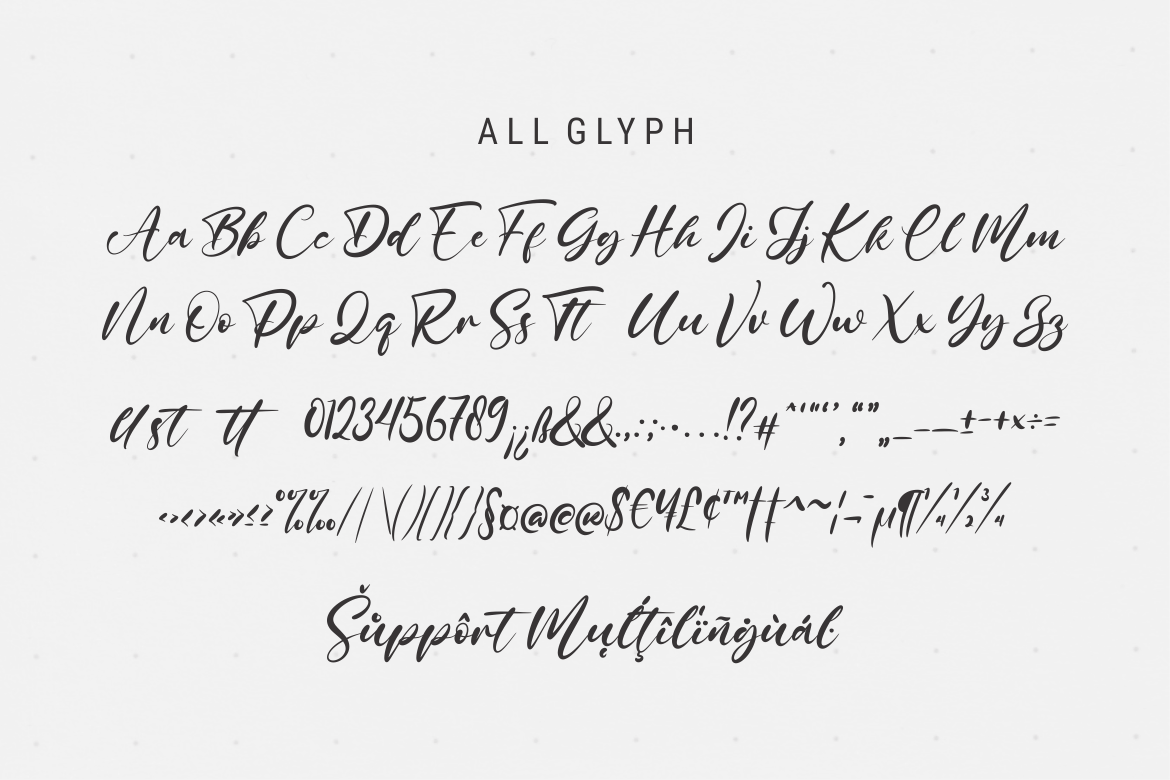 ALL GLYPH
Aa Bb Cc Dd Ee Ff Gg Hh Ii Jj Kk Ll Mm
Nn Oo Pp Qq Rr Ss Tt Uu Vv Ww Xx Yy Zz
st tt 0123456789¡¿ß&&.,:;·•…!?#"'‘’‚“”„_-–—±−+×÷=
‹›<>«»≤≥°%‰/|\()[]{}§¤@©®$€¥£¢™†‡^~¦¬¯µ¶¼½¾
Šůppôrt Mųľţîlïñġùáŀ